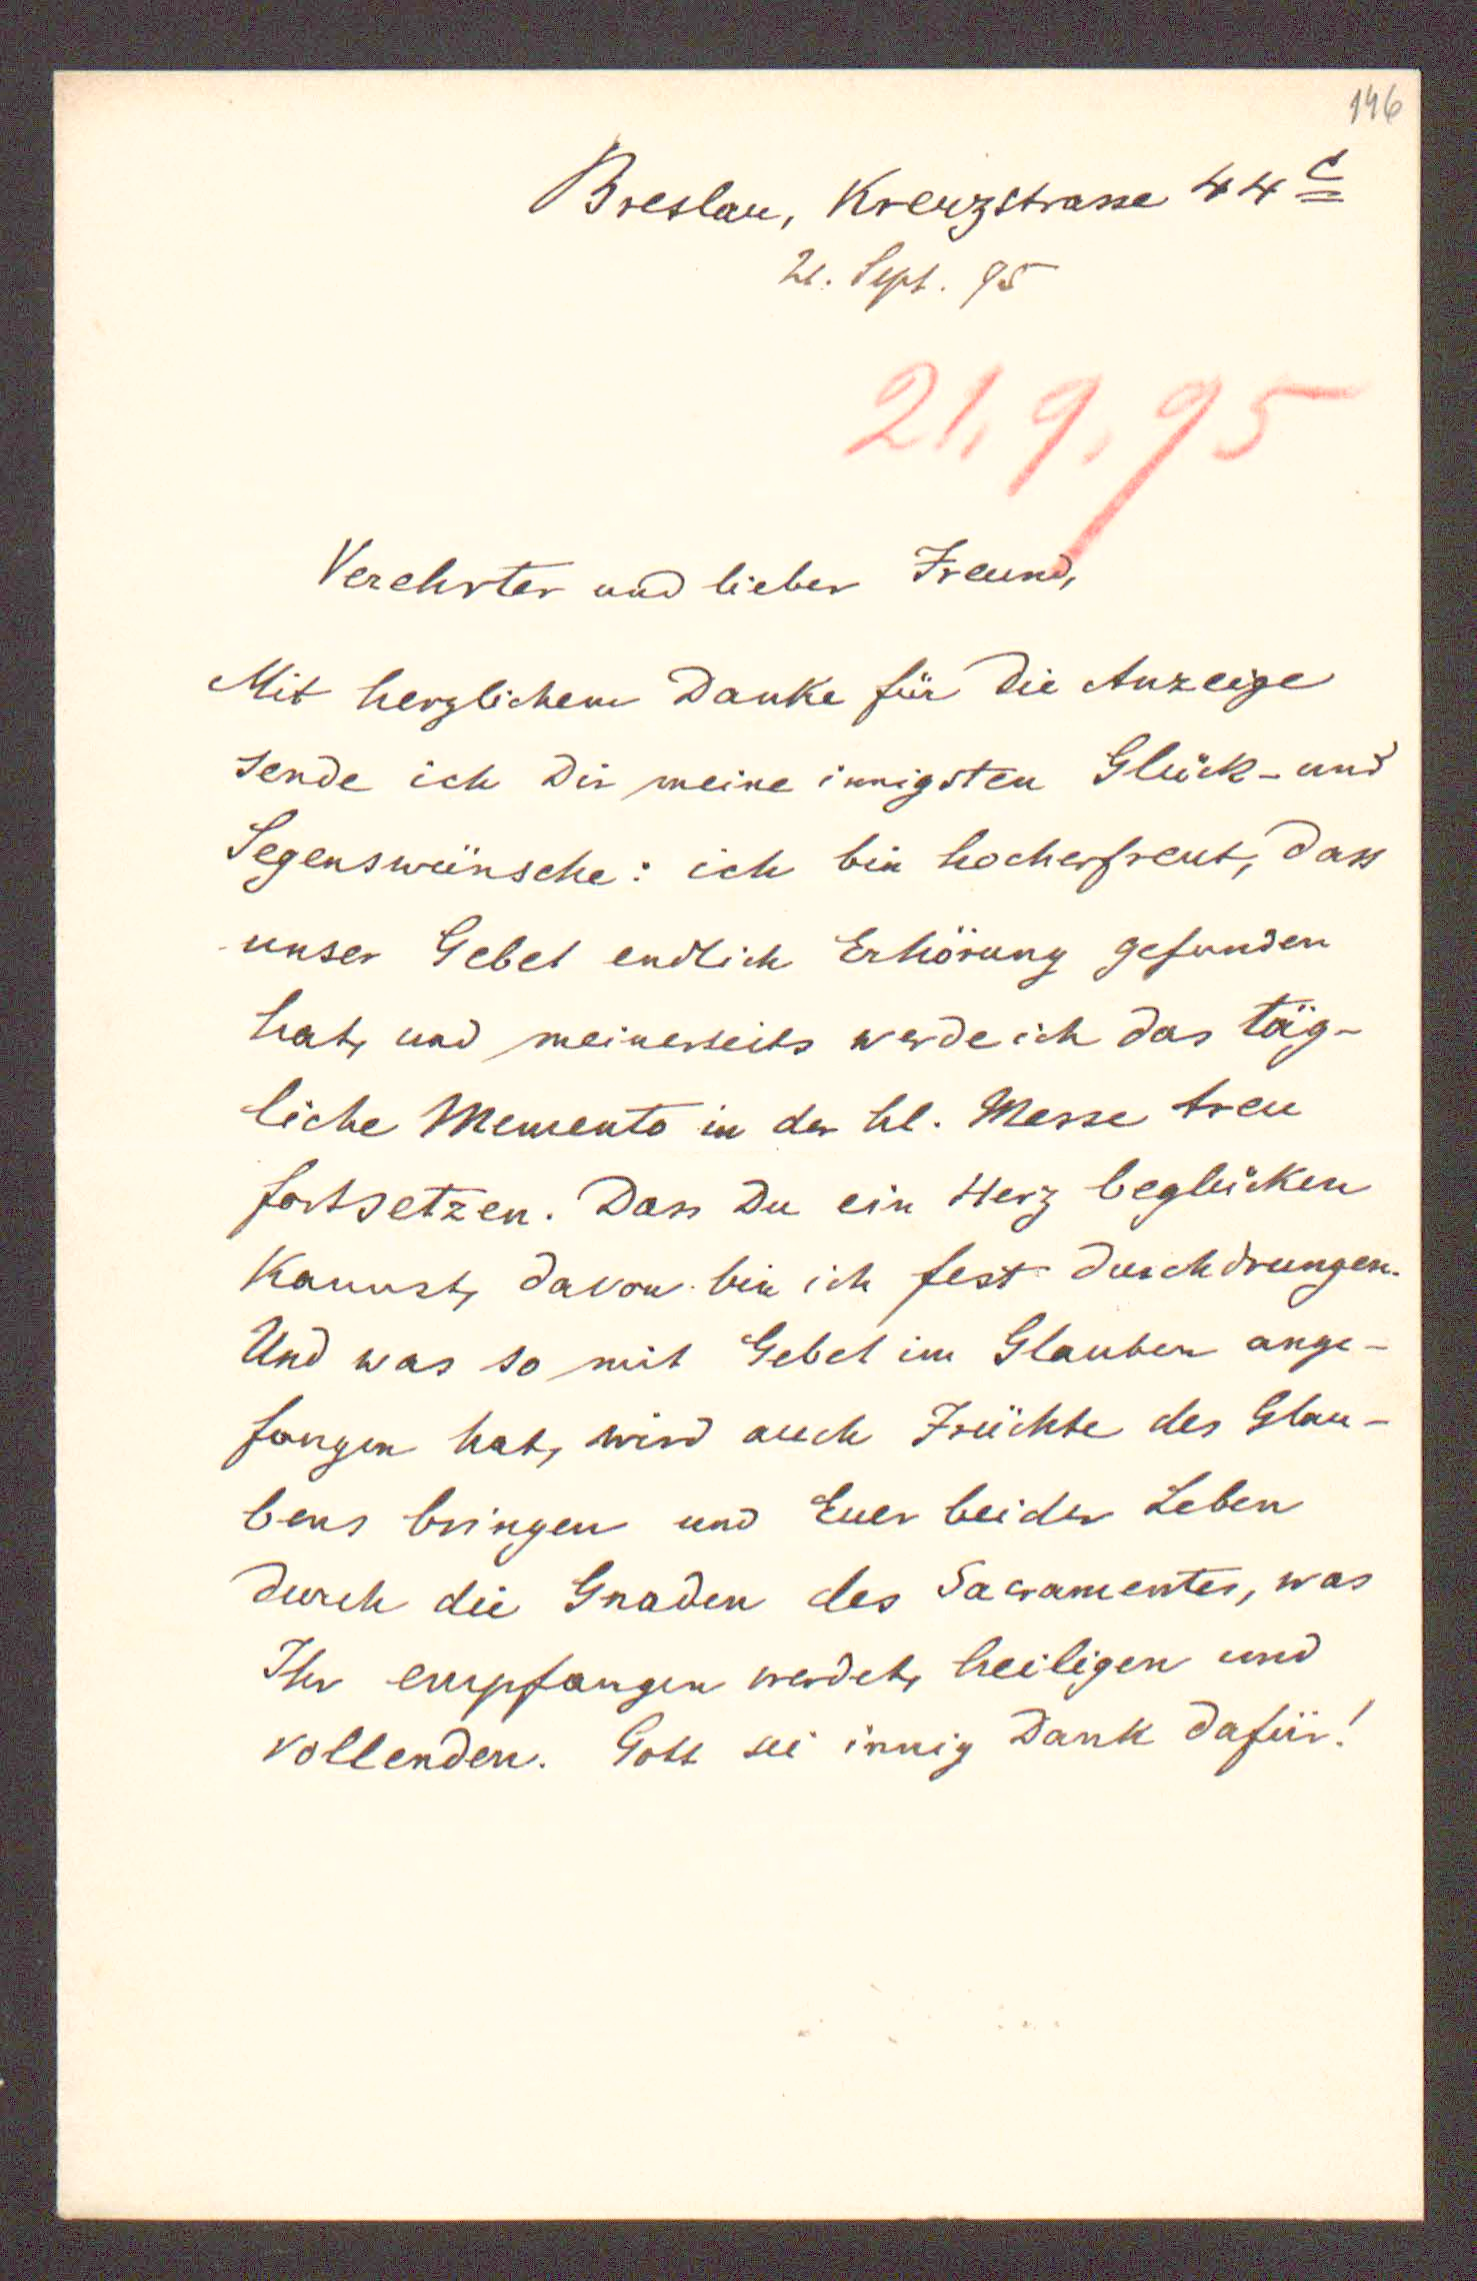 146
Breslau, Kreuzstrasse 44 c
21. Sept. 95
21. 9. 95
Verehrter und lieber Freund,
Mit herzlichem Danke für die Anzeige
sende ich Dir meine innigsten Glück- und
Segenswünsche: ich bin hocherfreut, dass
unser Gebet endlich Erhörung gefunden
hat, und meinerseits werde ich das täg-
liche Memento in der hl. Messe treu
fortsetzen. Dass Du ein Herz beglücken
kannst, davon bin ich fest durchdrungen.
Und was so mit Gebet im Glauben ange-
fangen hat, wird auch Früchte des Glau-
bens bringen und Euer beider Leben
durch die Gnaden des Sacramentes, was
Ihr empfangen werdet, heiligen und
vollenden. Gott sei innig Dank dafür!